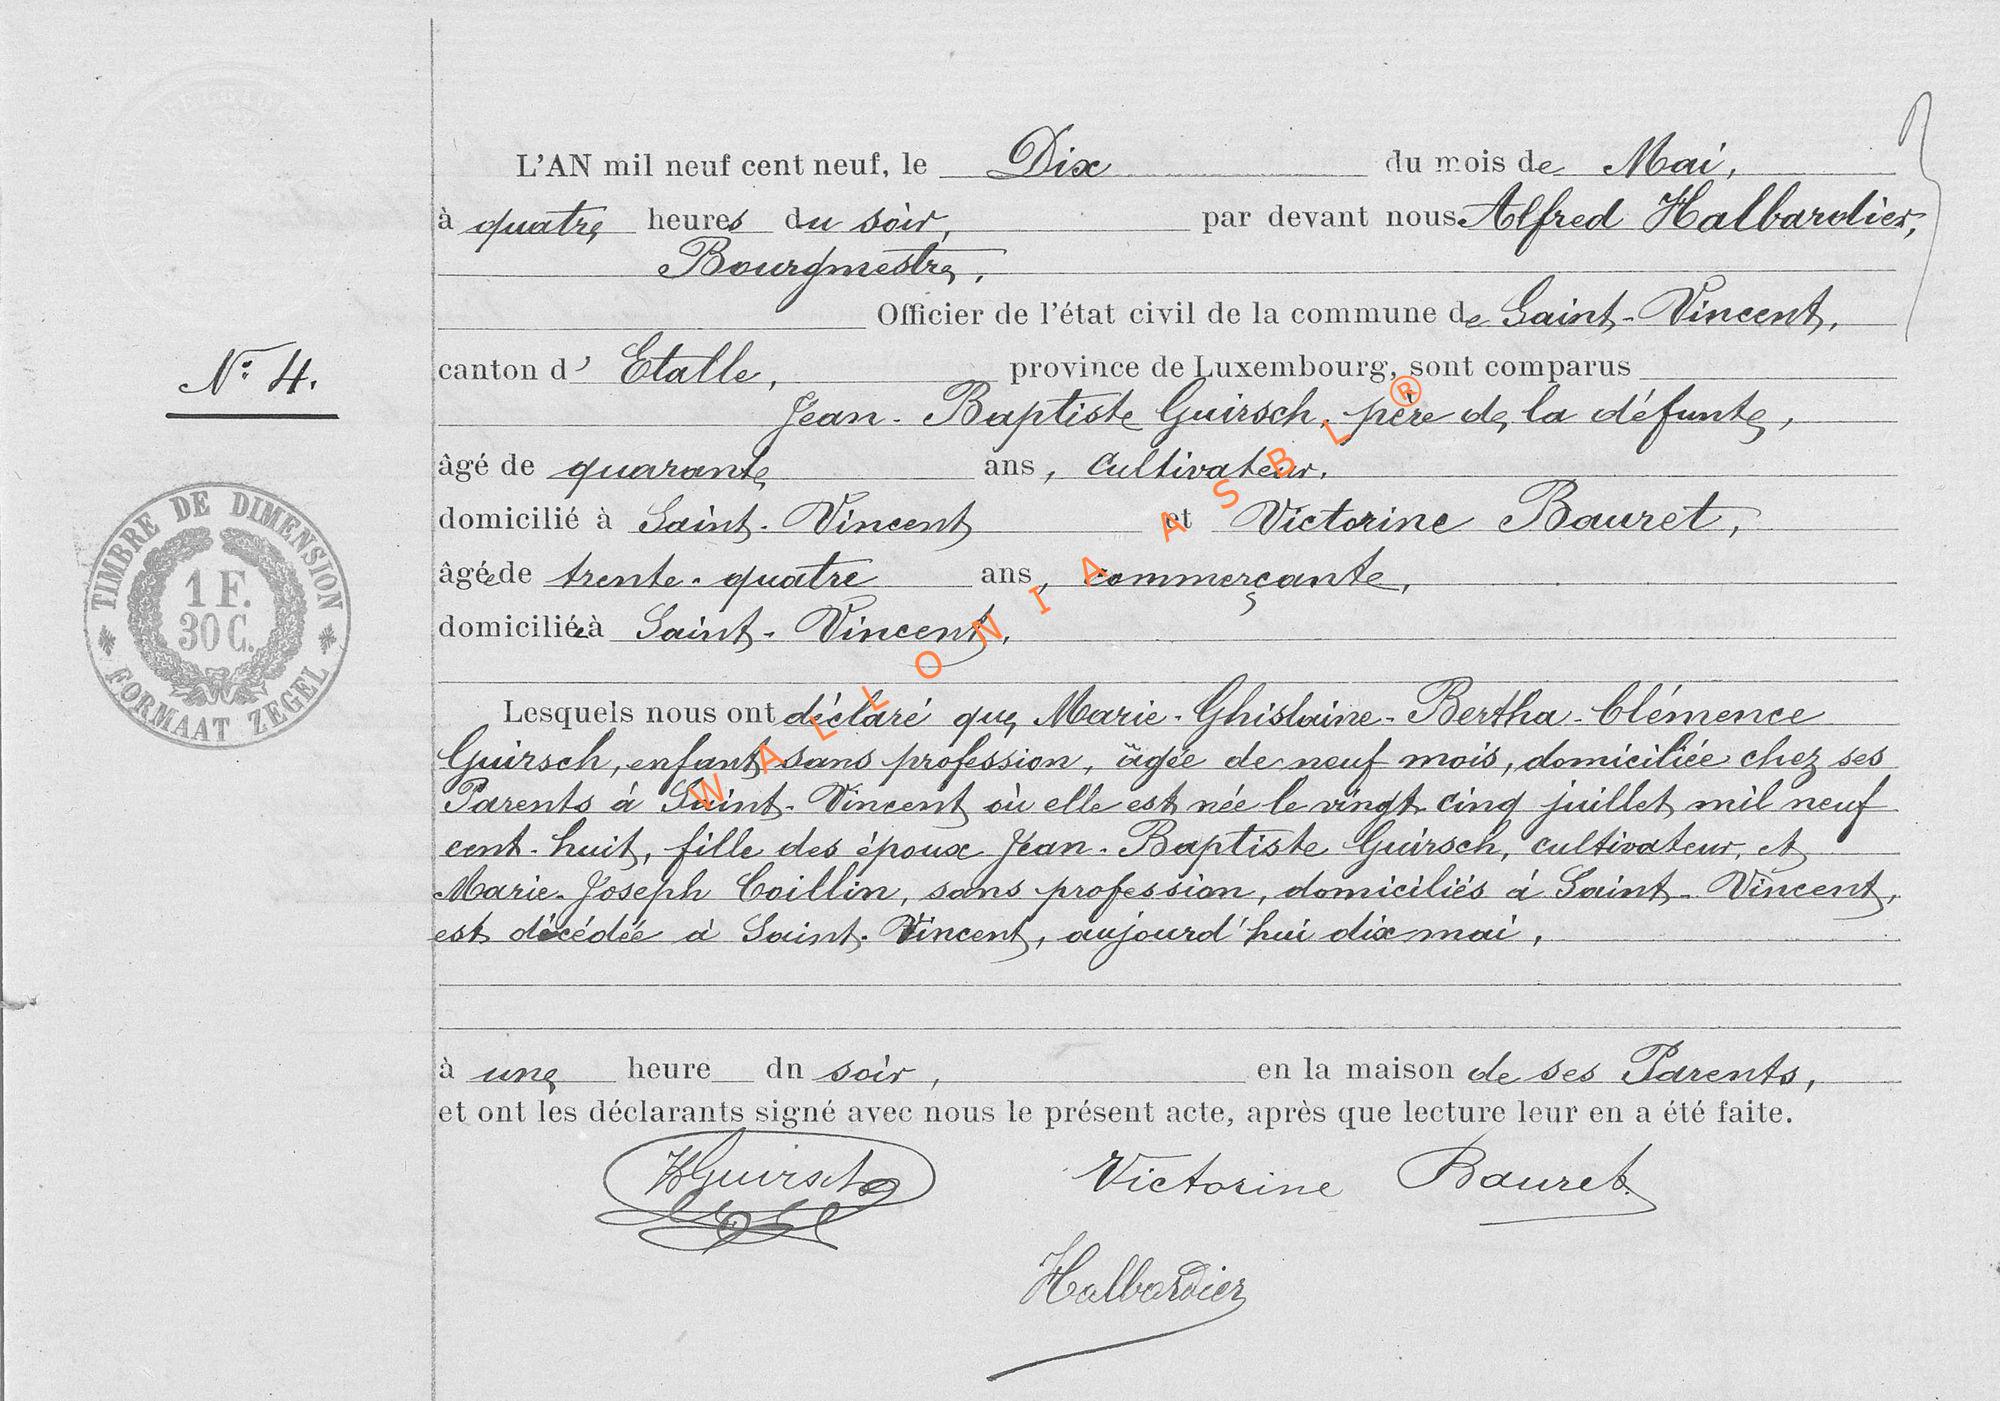 L'AN mil neuf cent neuf, le Dix du mois de Mai,
à quatre heures du soir, par devant nous Alfred Halbardier,
Bourgmestre,
Officier de l'état civil de la commune de Saint-Vincent,
canton d' Etalle, province de Luxembourg, sont comparus
Jean-Baptiste Guirsch, père de la défunte,
âgé de quarante ans, cultivateur,
domicilié à Saint-Vincent et Victorine Bauret,
âgée de trente-quatre ans, commerçante,
domiciliée à Saint-Vincent,
Lesquels nous ont déclaré que Marie-Ghislaine-Bertha-Clémence
Guirsch, enfant sans profession, âgée de neuf mois, domiciliée chez ses
Parents à Saint-Vincent où elle est née le vingt-cinq juillet mil neuf
cent-huit, fille des époux Jean-Baptiste Guirsch, cultivateur, et
Marie-Joseph Coillin, sans profession, domiciliés à Saint-Vincent,
est décédée à Saint-Vincent, aujourd'hui dix mai,
à une heure dn soir, en la maison de ses Parents,
et ont les déclarants signé avec nous le présent acte, après que lecture leur en a été faite.
JBGuirsch Victorine Bauret
Halbardier
N° 4.
TIMBRE DE DIMENSION
1 F.
30 C.
FORMAAT ZEGEL
WALLONIA ASBL ®